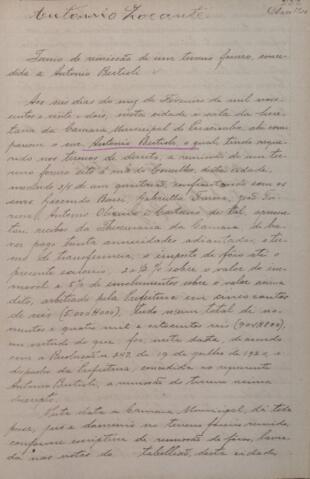 Antonio Locante
Termo de remissão de um terreno foreiro, conce-
dida a Antonio Bertioli
Aos seis dias do mez de Fevereiro de mil nove-
centos e vinte e dois, nesta cidade e sala da Secre-
taria da Camara Municipal de ahi com-
pareceu o snr. Antonio Bertioli, o qual, tendo reque-
rido nos termos de direito, a remissão de um ter-
reno foreiro sito á rua do Conselho, desta cidade,
medindo 2/4 de um quarteirão, confrontando com os
snrs.
Antonio e de tal, apresen-
tou recibos da Thesouraria da Camara, de ha-
ver pago trinta annuidades adiantadas, o ter-
mo de transferencia, o imposto de fóros até o
presente exercicio, 2 1/2 % sobre o valor do im-
movel e 5% de emolumentos sobre o valor acima
dito, arbitrado pela Prefeitura em cinco contos
de réis (5:000$000), tudo num total de no-
venta e quatro mil e oitocentos réis (904$800),
em virtude do que foi, nesta data, de accordo
com a Resolução nº 247 de 19 de julho de 1921, e
despacho da Prefeitura, concedida ao requerente
Antonio Bertioli, a remissão do terreno acima
descripto.
Nesta data a Camara Municipal, dá toda
posse, jus e dominio no terreno foreiro remido,
conforme escriptura de remissão de fóros, lavra-
da nas notas do tabellião, desta cidade